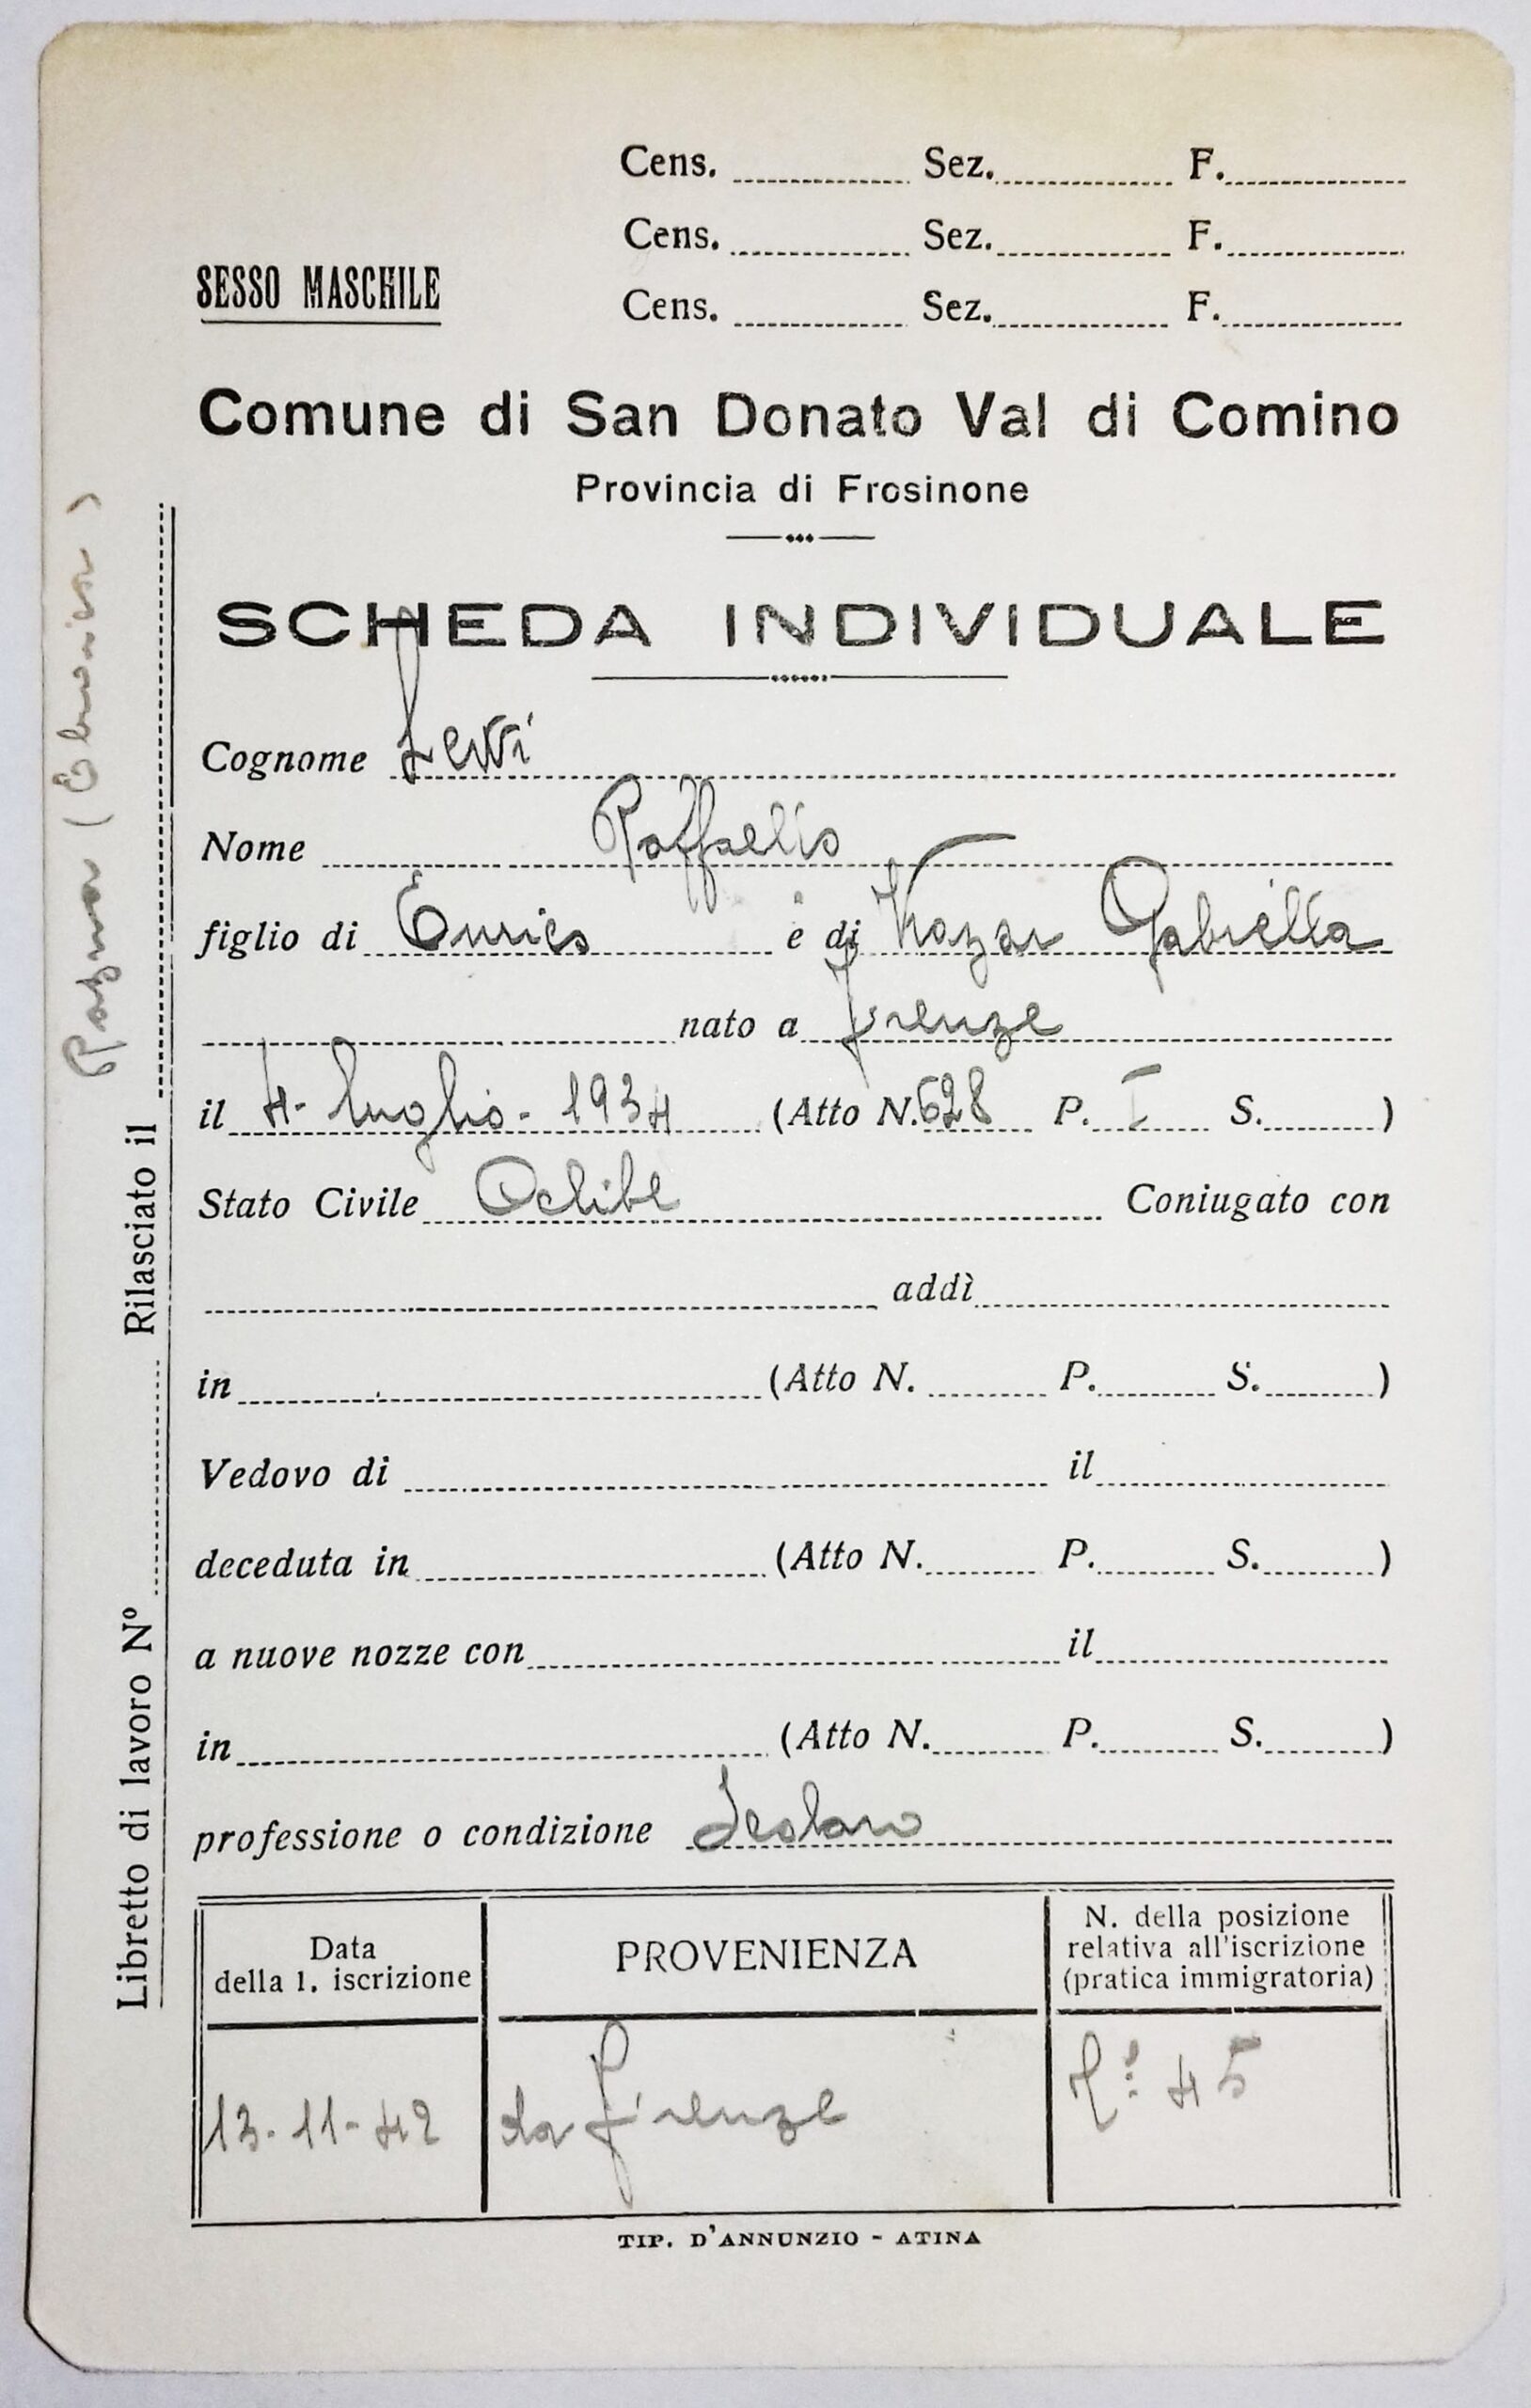 Cens. Sez. F.
Cens. Sez. F.
SESSO MASCHILE
Cens. Sez. F.
Comune di San Donato Val di Comino
Provincia di Frosinone
SCHEDA INDIVIDUALE
Cognome Levi
Nome Raffaello
figlio di Enrico e di Kazar Gabriella
nato a Firenze
il 4- luglio- 1934 (Atto N. 628 P. I S. )
Stato Civile Celibe Coniugato con
addì
in (Atto N. P. S. )
Vedovo di il
deceduta in (Atto N. P. S. )
a nuove nozze con il
in (Atto N. P. S. )
professione o condizione Scolaro
Data
della 1. iscrizione
PROVENIENZA
N. della posizione
relativa all'iscrizione
(pratica immigratoria)
13-11-42
da Firenze
45
TIP. D'ANNUNZIO - ATINA
Libretto di lavoro Nº Rilasciato il
Razza (Ebraica)